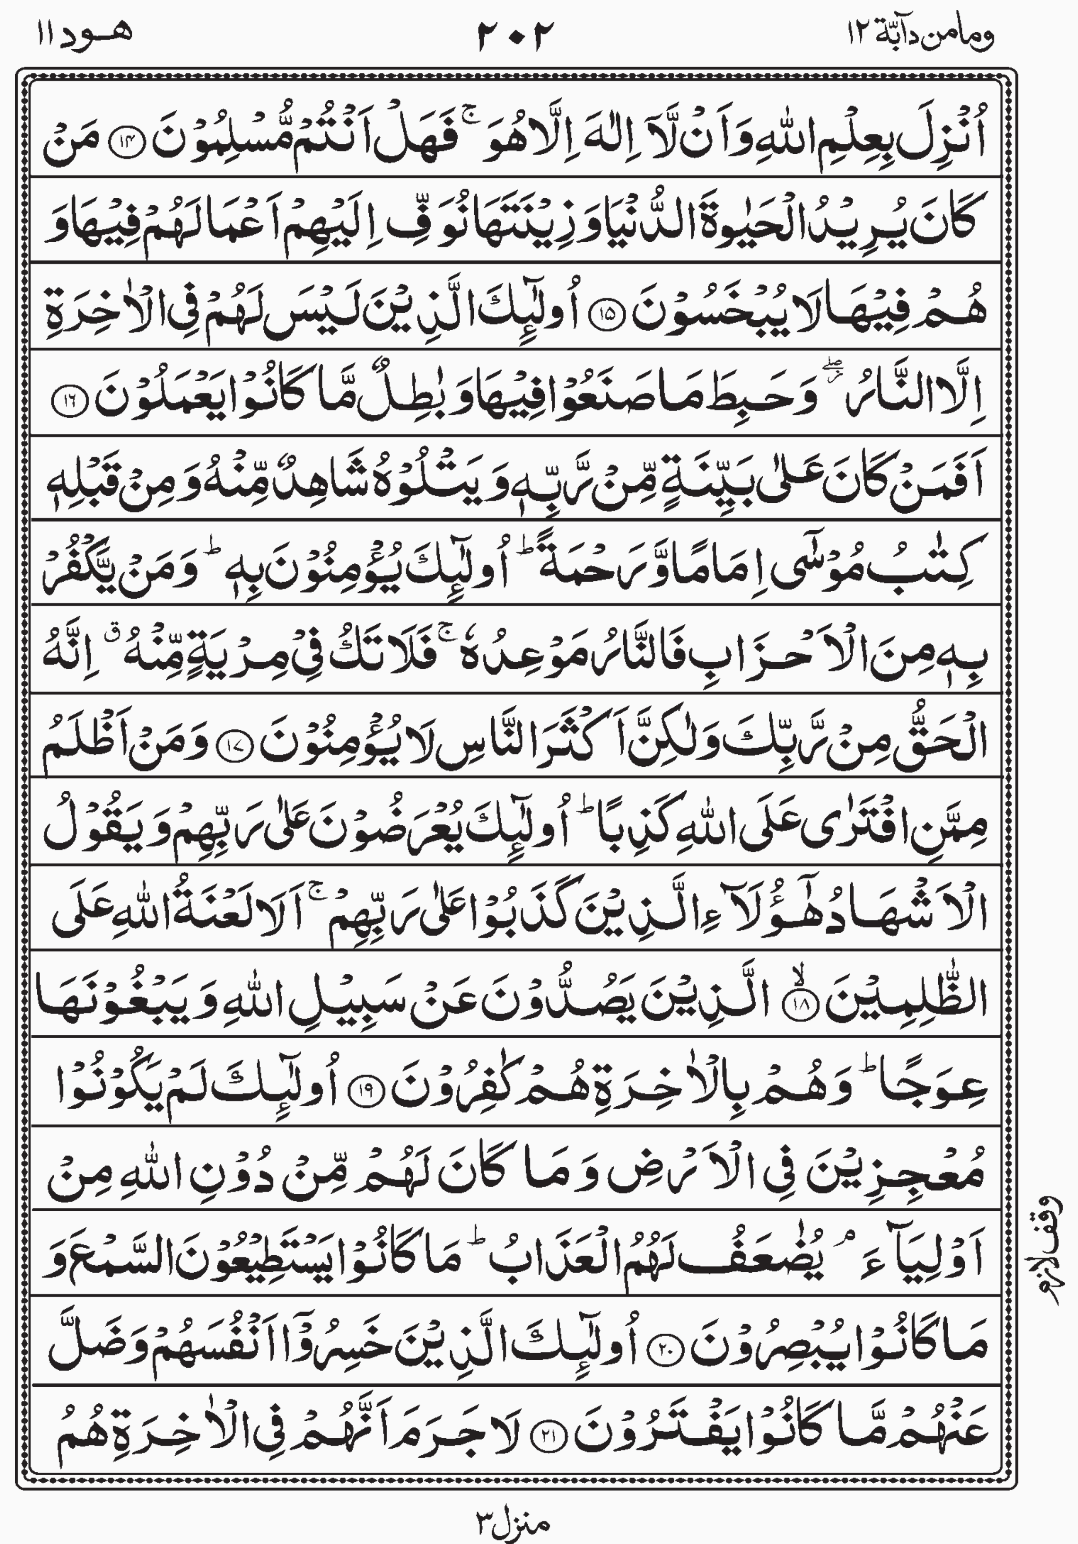 ومامن دآبّة ١٢
٢٠٢
هود ١١
اُنْزِلَ بِعِلْمِ اللّٰهِ وَاَنْ لَّاۤ اِلٰهَ اِلَّا هُوَ ۚ فَهَلْ اَنْتُمْ مُّسْلِمُوْنَ ﴿۱۴﴾ مَنْ
كَانَ يُرِيْدُ الْحَيٰوةَ الدُّنْيَا وَزِيْنَتَهَا نُوَفِّ اِلَيْهِمْ اَعْمَالَهُمْ فِيْهَا وَ
هُمْ فِيْهَا لَا يُبْخَسُوْنَ ﴿۱۵﴾ اُولٰٓئِكَ الَّذِيْنَ لَيْسَ لَهُمْ فِي الْاٰخِرَةِ
اِلَّا النَّارُ ۖؗ وَحَبِطَ مَا صَنَعُوْا فِيْهَا وَبٰطِلٌ مَّا كَانُوْا يَعْمَلُوْنَ ﴿۱۶﴾
اَفَمَنْ كَانَ عَلٰى بَيِّنَةٍ مِّنْ رَّبِّهٖ وَيَتْلُوْهُ شَاهِدٌ مِّنْهُ وَمِنْ قَبْلِهٖ
كِتٰبُ مُوْسٰۤى اِمَامًا وَّرَحْمَةً ؕ اُولٰٓئِكَ يُؤْمِنُوْنَ بِهٖ ؕ وَمَنْ يَّكْفُرْ
بِهٖ مِنَ الْاَحْزَابِ فَالنَّارُ مَوْعِدُهٗ ۚ فَلَا تَكُ فِيْ مِرْيَةٍ مِّنْهُ ۗ اِنَّهُ
الْحَقُّ مِنْ رَّبِّكَ وَلٰكِنَّ اَكْثَرَ النَّاسِ لَا يُؤْمِنُوْنَ ﴿۱۷﴾ وَمَنْ اَظْلَمُ
مِمَّنِ افْتَرٰى عَلَى اللّٰهِ كَذِبًا ؕ اُولٰٓئِكَ يُعْرَضُوْنَ عَلٰى رَبِّهِمْ وَيَقُوْلُ
الْاَشْهَادُ هٰٓؤُلَآءِ الَّذِيْنَ كَذَبُوْا عَلٰى رَبِّهِمْ ۚ اَلَا لَعْنَةُ اللّٰهِ عَلَى
الظّٰلِمِيْنَ ۙ﴿۱۸﴾ الَّذِيْنَ يَصُدُّوْنَ عَنْ سَبِيْلِ اللّٰهِ وَيَبْغُوْنَهَا
عِوَجًا ؕ وَهُمْ بِالْاٰخِرَةِ هُمْ كٰفِرُوْنَ ﴿۱۹﴾ اُولٰٓئِكَ لَمْ يَكُوْنُوْا
مُعْجِزِيْنَ فِي الْاَرْضِ وَمَا كَانَ لَهُمْ مِّنْ دُوْنِ اللّٰهِ مِنْ
اَوْلِيَآءَ ۘ يُضٰعَفُ لَهُمُ الْعَذَابُ ؕ مَا كَانُوْا يَسْتَطِيْعُوْنَ السَّمْعَ وَ
وقف لازم
مَا كَانُوْا يُبْصِرُوْنَ ﴿۲۰﴾ اُولٰٓئِكَ الَّذِيْنَ خَسِرُوْۤا اَنْفُسَهُمْ وَضَلَّ
عَنْهُمْ مَّا كَانُوْا يَفْتَرُوْنَ ﴿۲۱﴾ لَا جَرَمَ اَنَّهُمْ فِي الْاٰخِرَةِ هُمُ
منزل ٣